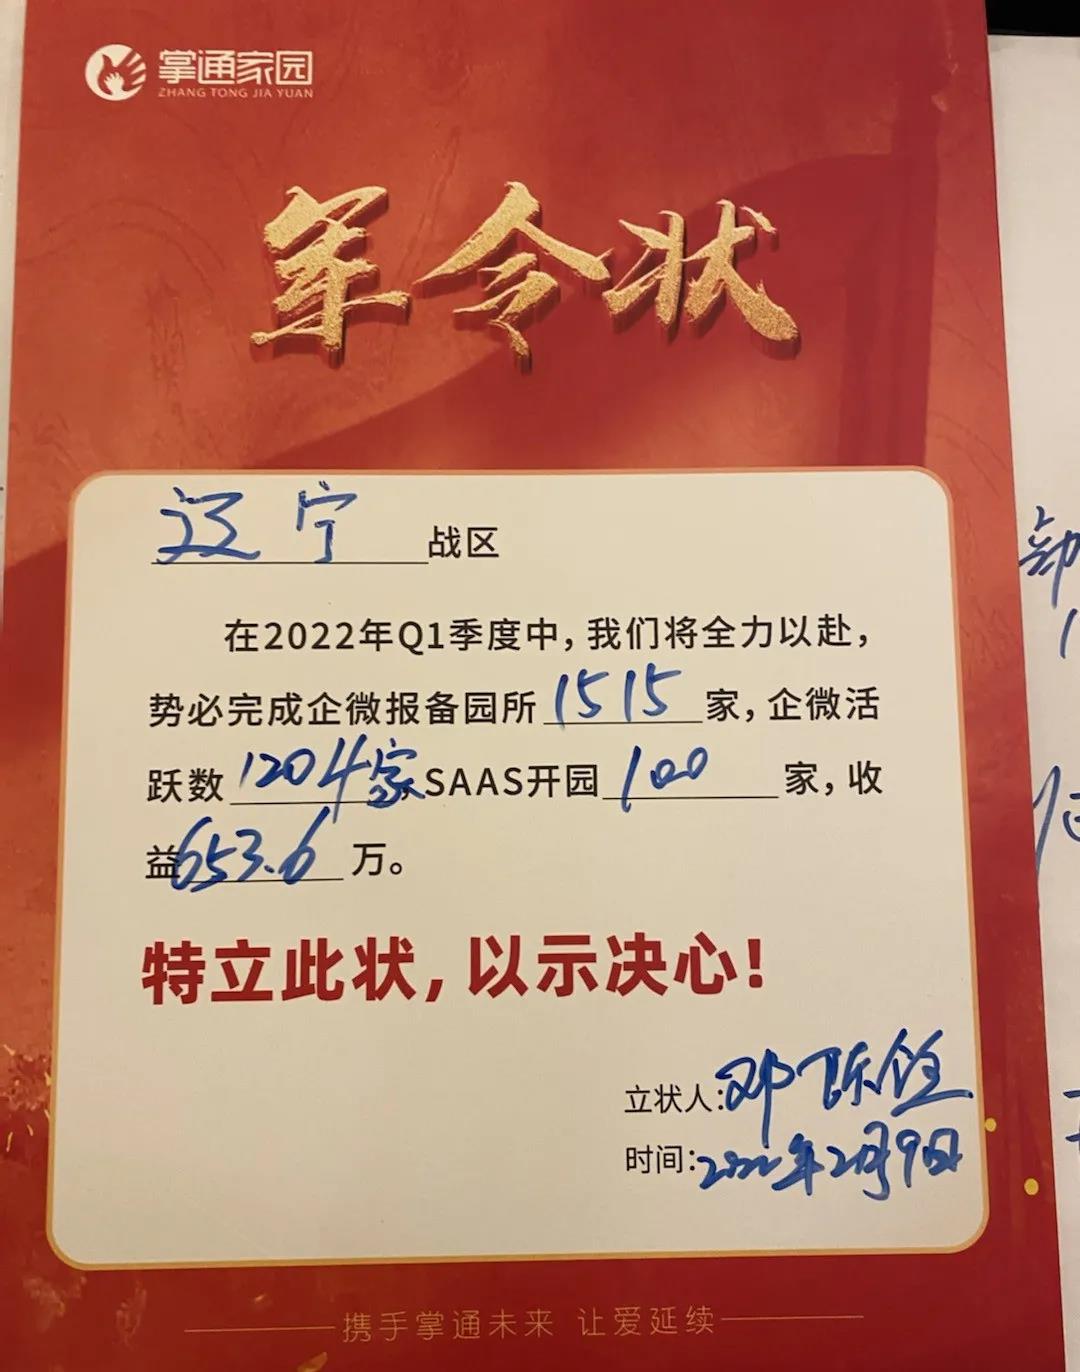 掌通家园
ZHANG TONG JIA YUAN
军令状
辽宁战区
在2022年Q1季度中,我们将全力以赴,
势必完成企微报备园所1515家,企微活
跃数1204家SAAS开园100家,收
益653.6万。
特立此状,以示决心!
立状人:邓陈
时间:2022年2月9日
携手掌通未来 让爱延续